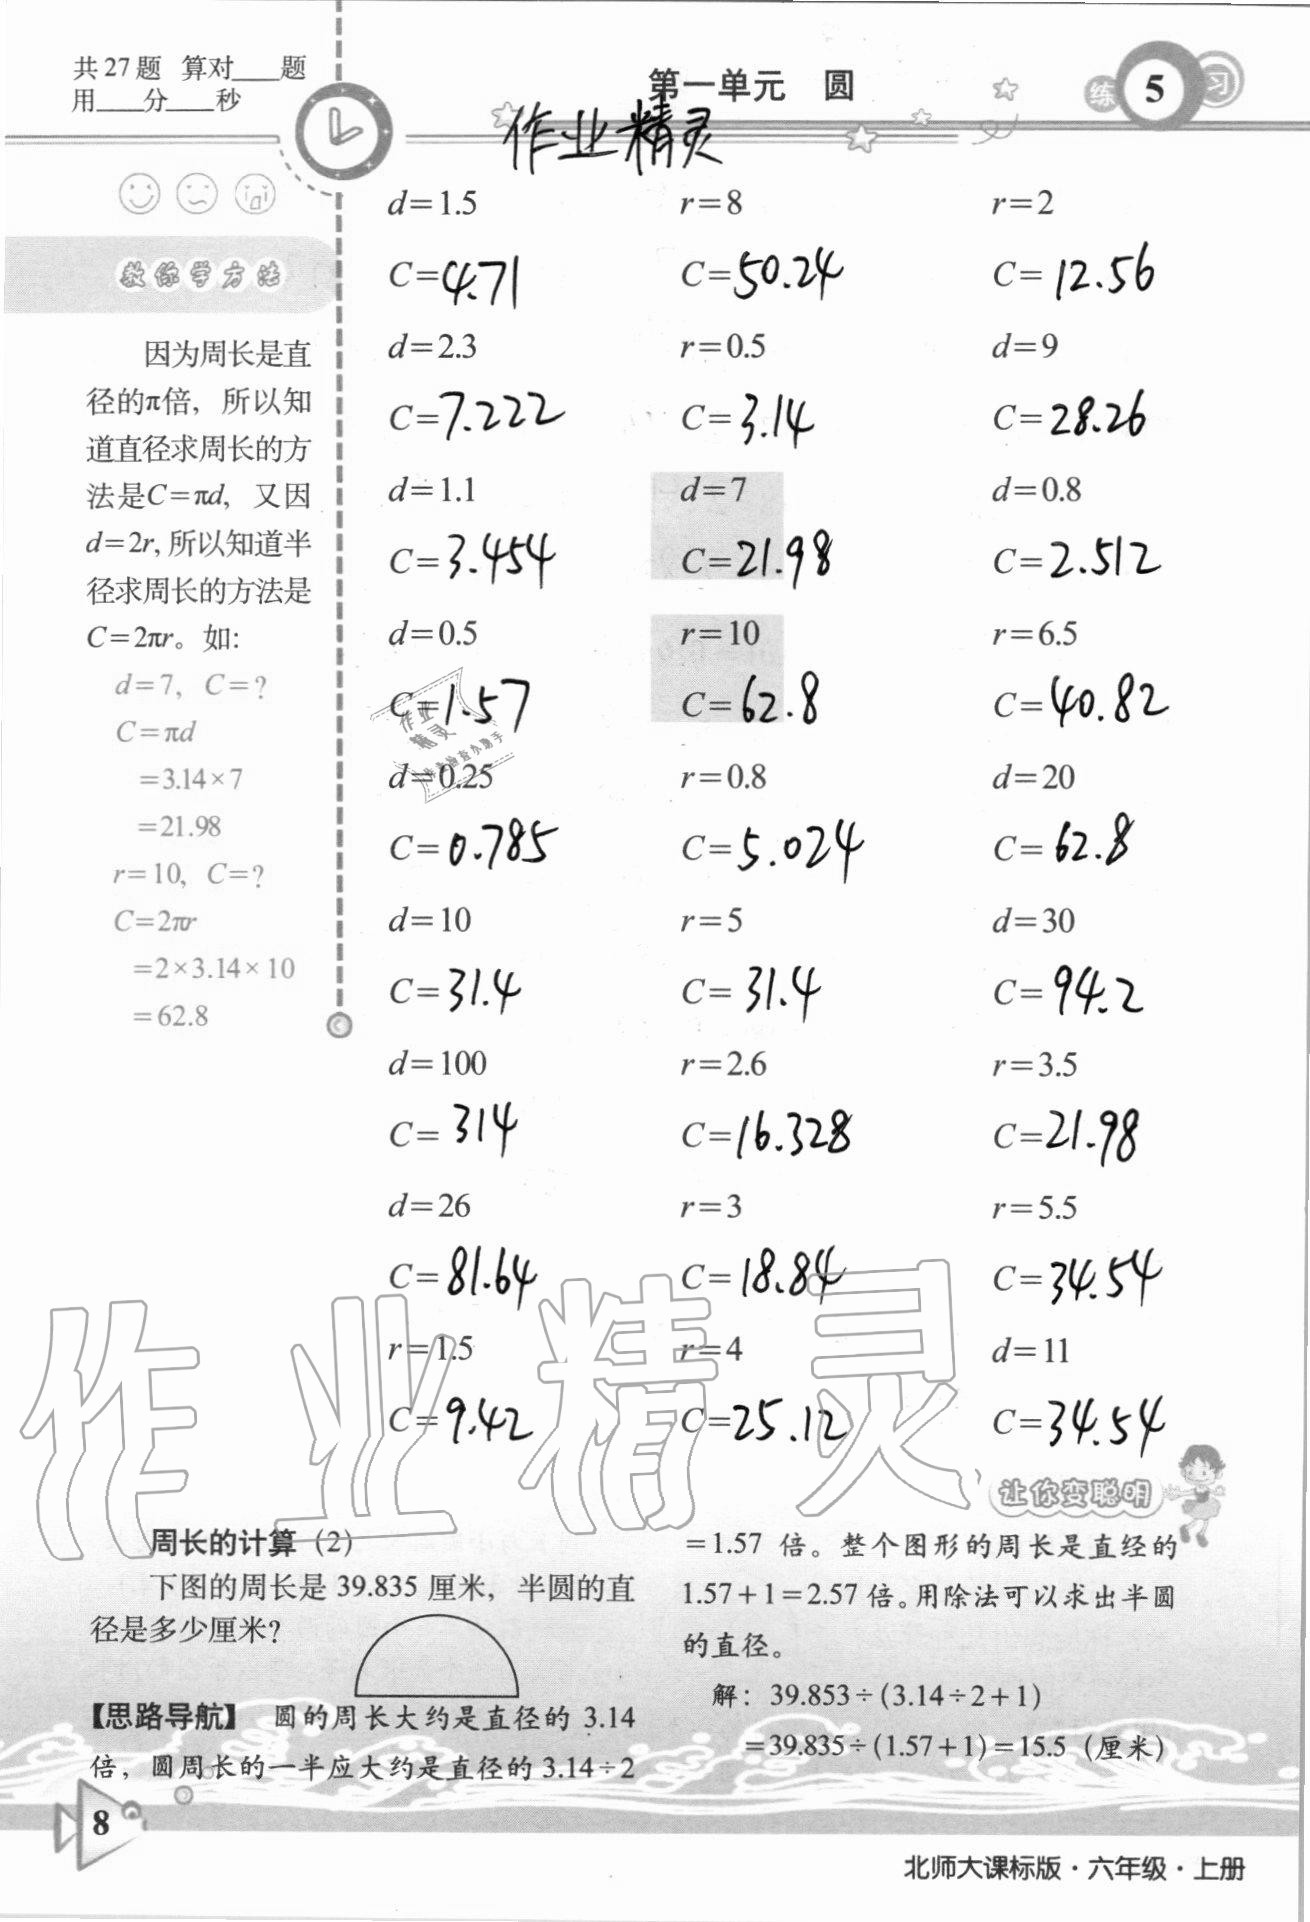 共27题 算对____题
用____分____秒
第一单元 圆
练 5 习
作业精灵
教你学方法
因为周长是直
径的π倍，所以知
道直径求周长的方
法是C=πd，又因
d=2r,所以知道半
径求周长的方法是
C=2πr。如:
d=7，C=?
C=πd
=3.14×7
=21.98
r=10，C=?
C=2πr
=2×3.14×10
=62.8
d=1.5 r=8 r=2
C=4.71 C=50.24 C=12.56
d=2.3 r=0.5 d=9
C=7.222 C=3.14 C=28.26
d=1.1 d=7 d=0.8
C=3.454 C=21.98 C=2.512
d=0.5 r=10 r=6.5
C=1.57 C=62.8 C=40.82
作业
精灵
d=0.25 r=0.8 d=20
C=0.785 C=5.024 C=62.8
d=10 r=5 d=30
C=31.4 C=31.4 C=94.2
d=100 r=2.6 r=3.5
C=314 C=16.328 C=21.98
d=26 r=3 r=5.5
C=81.64 C=18.84 C=34.54
r=1.5 r=4 d=11
C=9.42 C=25.12 C=34.54
作业精灵
让你变聪明
周长的计算（2）
下图的周长是 39.835 厘米，半圆的直
径是多少厘米?
【思路导航】 圆的周长大约是直径的 3.14
倍，圆周长的一半应大约是直径的 3.14÷2
=1.57 倍。整个图形的周长是直经的
1.57+1=2.57 倍。用除法可以求出半圆
的直径。
解：39.853÷(3.14÷2+1)
=39.835÷(1.57+1)=15.5（厘米）
8
北师大课标版·六年级·上册